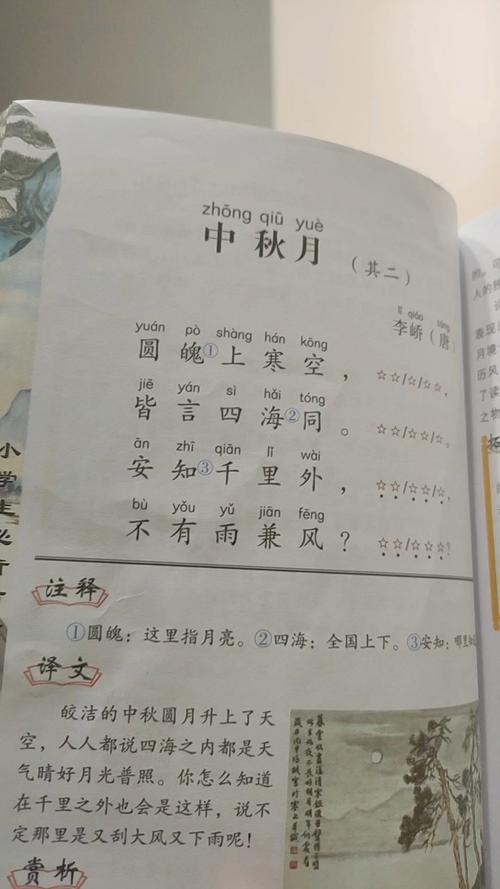 zhōng qiū yuè
中秋月
（其二）
lǐ qiáo táng
李峤（唐）
yuán pò shàng hán kōng
圆魄①上寒空，
☆☆/☆/☆☆，
jiē yán sì hǎi tóng
皆言四海②同。
☆☆/☆☆/☆。
ān zhī qiān lǐ wài
安知③千里外，
☆☆/☆☆/☆，
bù yǒu yǔ jiān fēng
不有雨兼风？
☆☆/☆☆☆？
注释
①圆魄：这里指月亮。②四海：全国上下。③安知：哪里
译文
皎洁的中秋圆月升上了天
空，人人都说四海之内都是天
气晴好月光普照。你怎么知道
在千里之外也会是这样，说不
定那里是又刮大风又下雨呢！
赏析
小学生必
人的
表现
月
历风
了读
之物
拓